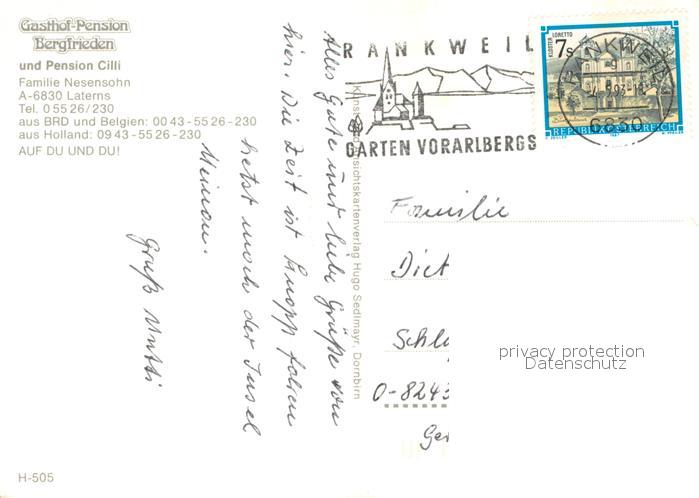 Gasthof-Pension
Bergfrieden
und Pension Cilli
Familie Nesensohn
A-6830 Laterns
Tel. 0 55 26/230
aus BRD und Belgien: 00 43-55 26-230
aus Holland: 09 43-55 26-230
AUF DU UND DU!
Alles Gute und liebe Grüße von
hier. Die Zeit ist knapp fahren
jetzt noch der Insel
Meinau.
Gruß Mutti
H-505
Ansichtskartenverlag Hugo Sedlmayr, Dornbirn
RANKWEIL
GARTEN VORARLBERGS
KLOSTER LORETTO
7s
REPUBLIK ÖSTERREICH
RANKWEIL
6830
Familie
Diet
Schl
O-8243
Ge
privacy protection
Datenschutz